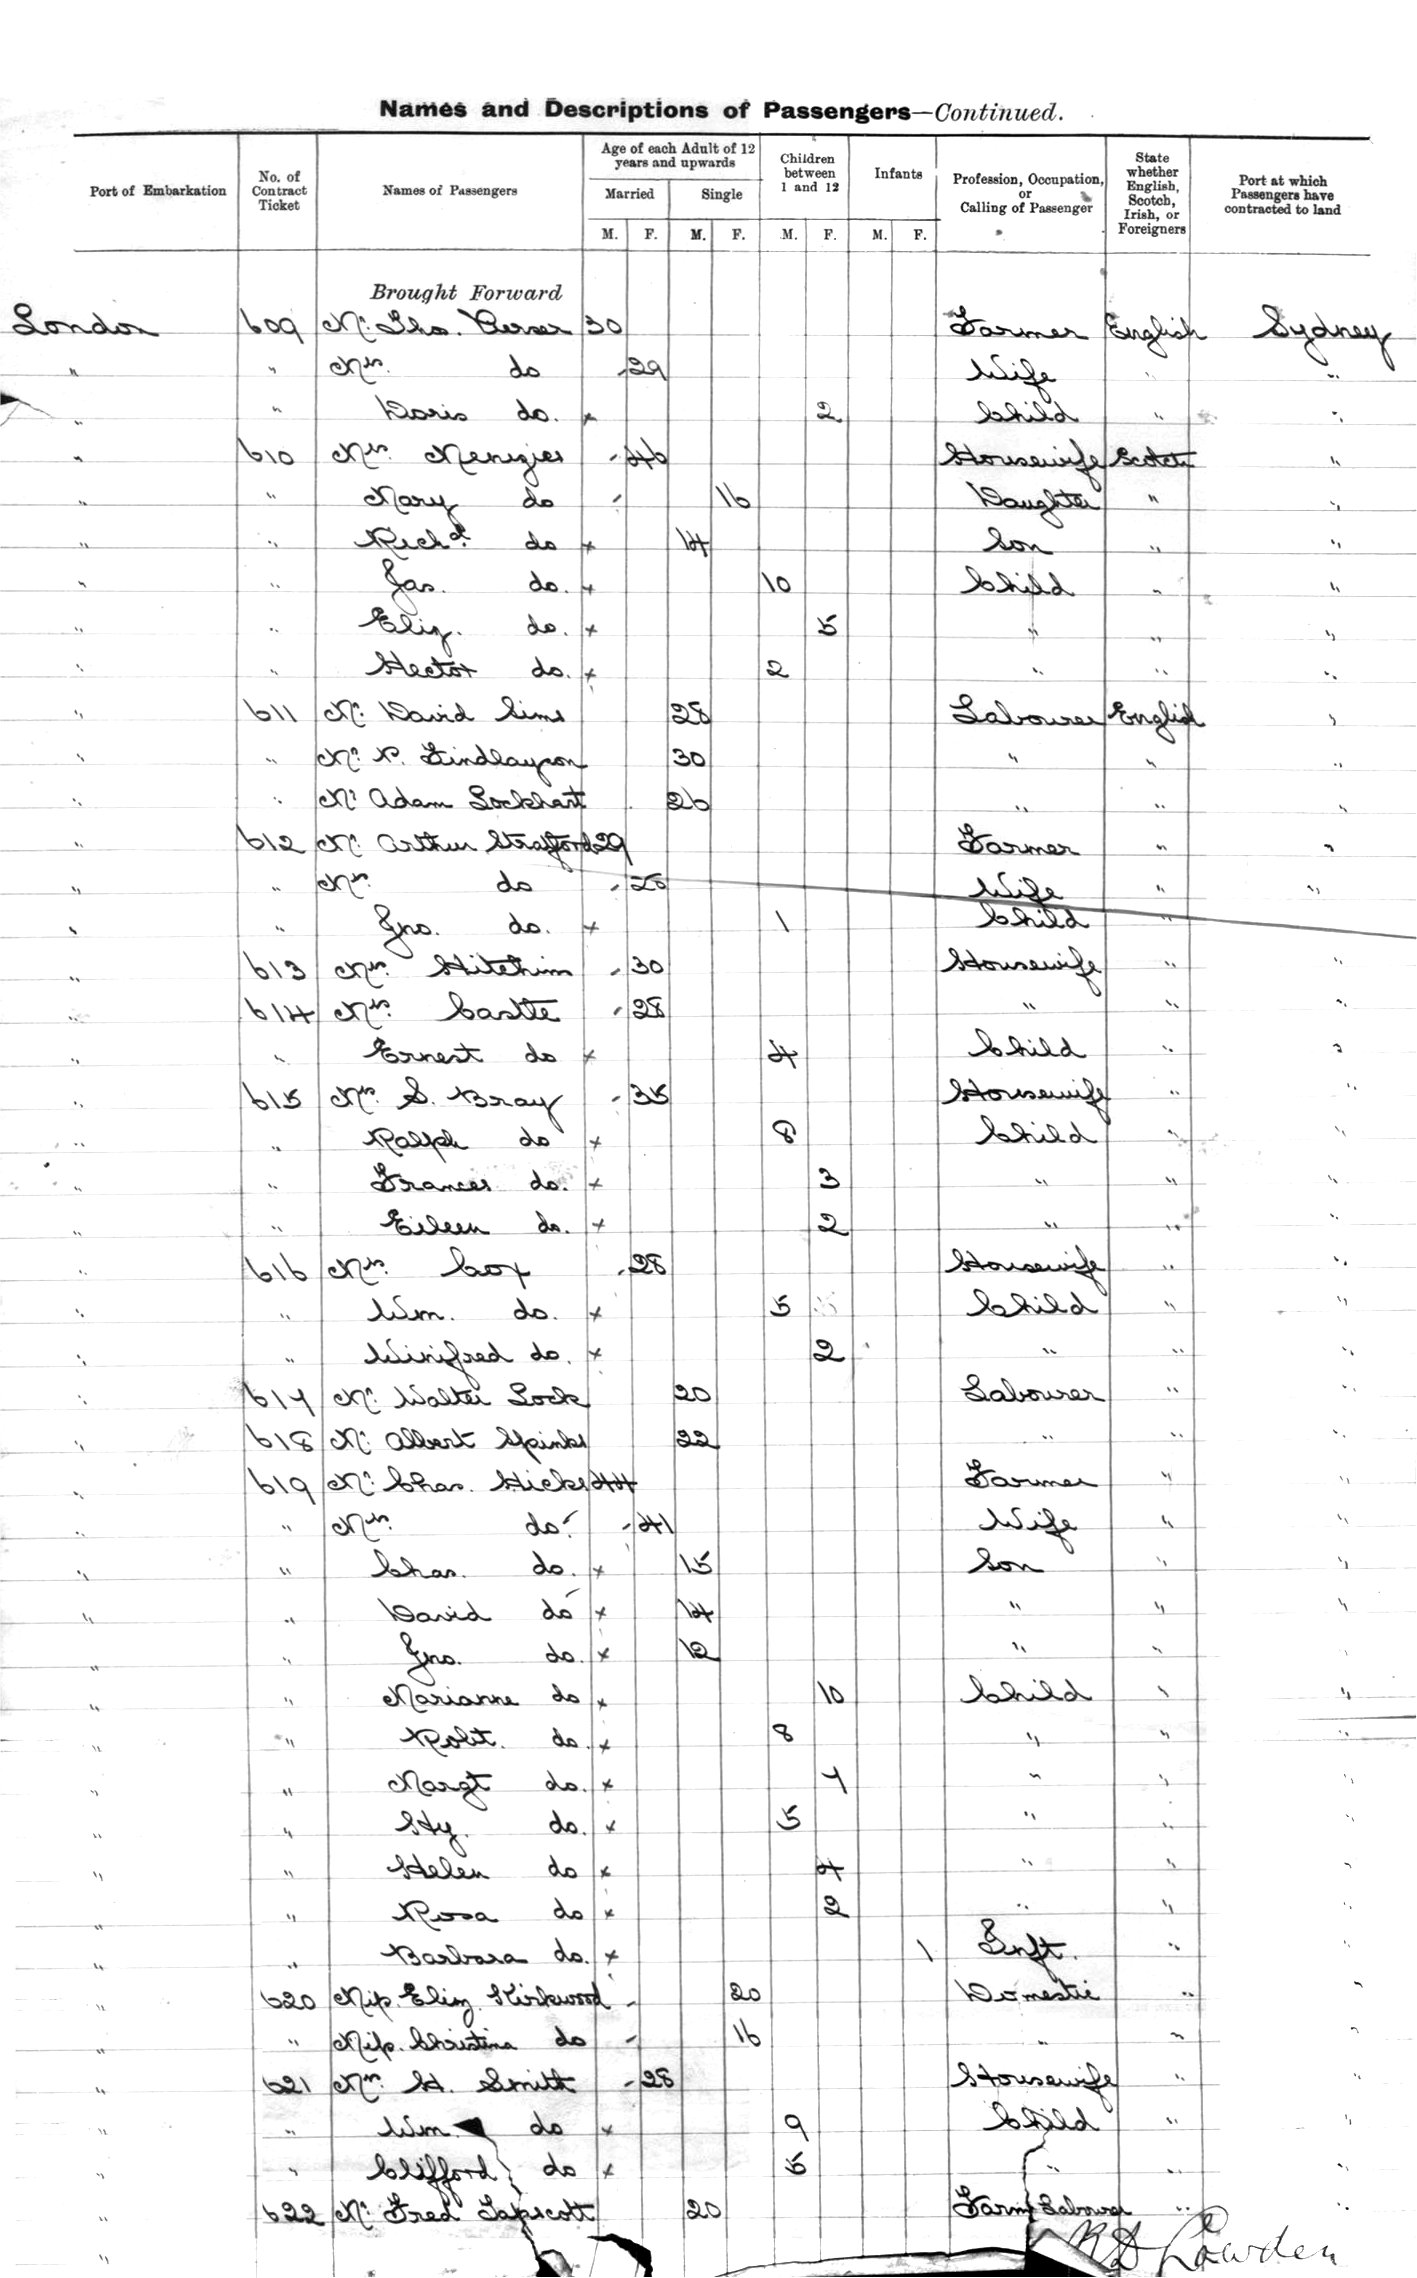 Names and Descriptions of Passengers—Continued.
Port of Embarkation
No. of Contract Ticket
Names of Passengers
Age of each Adult of 12 years and upwards
Married
Single
M. F. M. F.
Children between 1 and 12
M. F.
Infants
M. F.
Profession, Occupation, or Calling of Passenger
State whether English, Scotch, Irish, or Foreigners
Port at which Passengers have contracted to land
Brought Forward
London 609 Mr. Thos. 30 Farmer English Sydney
" " Mrs. do - 29 Wife " "
" " Doris do. x 2 Child " "
" 610 Mrs. Menzies - 46 Housewife Scotch "
" " Mary do - 16 Daughter " "
" " Richd. do x 14 Son " "
" " Jas. do. x 10 Child " "
" " Eliz. do. x 5 " " "
" " Hector do. x 2 " " "
" 611 Mr. David Sims 28 Labourer English "
" " Mr. P. Findlayson 30 " " "
" " Mr Adam Lockhart 26 " " "
" 612 Mr. Arthur Strafford 29 Farmer " "
" " Mrs. do - 28 Wife " "
" " Jno. do. x 1 Child " "
" 613 Mrs. Hitchins - 30 Housewife " "
" 614 Mrs. Castle - 28 " " "
" " Ernest do x 4 Child " "
" 615 Mrs. S. Bray - 35 Housewife " "
" " Ralph do x 8 Child " "
" " Frances do. x 3 " " "
" " Eileen do. x 2 " " "
" 616 Mrs. Cox - 28 Housewife " "
" " Wm. do. x 5 Child " "
" " Winifred do. x 2 " " "
" 617 Mr. Walter Lock 20 Labourer " "
" 618 Mr. Albert Spinks 22 " " "
" 619 Mr. Chas. Hicks 44 Farmer " "
" " Mrs. do. - 41 Wife " "
" " Chas. do. x 15 Son " "
" " David do x 14 " " "
" " Jno. do. x 12 " " "
" " Marianne do x 10 Child " "
" " Robt. do. x 8 " " "
" " Margt do. x 7 " " "
" " Hy. do. x 5 " " "
" " Helen do x 4 " " "
" " Rosa do x 2 " " "
" " Barbara do. x 1 Inft. " "
" 620 Miss Eliz. Kirkwood - 20 Domestic " "
" " Miss. Christina do - 16 " " "
" 621 Mrs. H. Smith - 28 Housewife " "
" " Wm do x 9 Child " "
" " Clifford do x 5 " " "
" 622 Mr. Fred Tapscott 20 Farm Labourer " "
"
Lowden